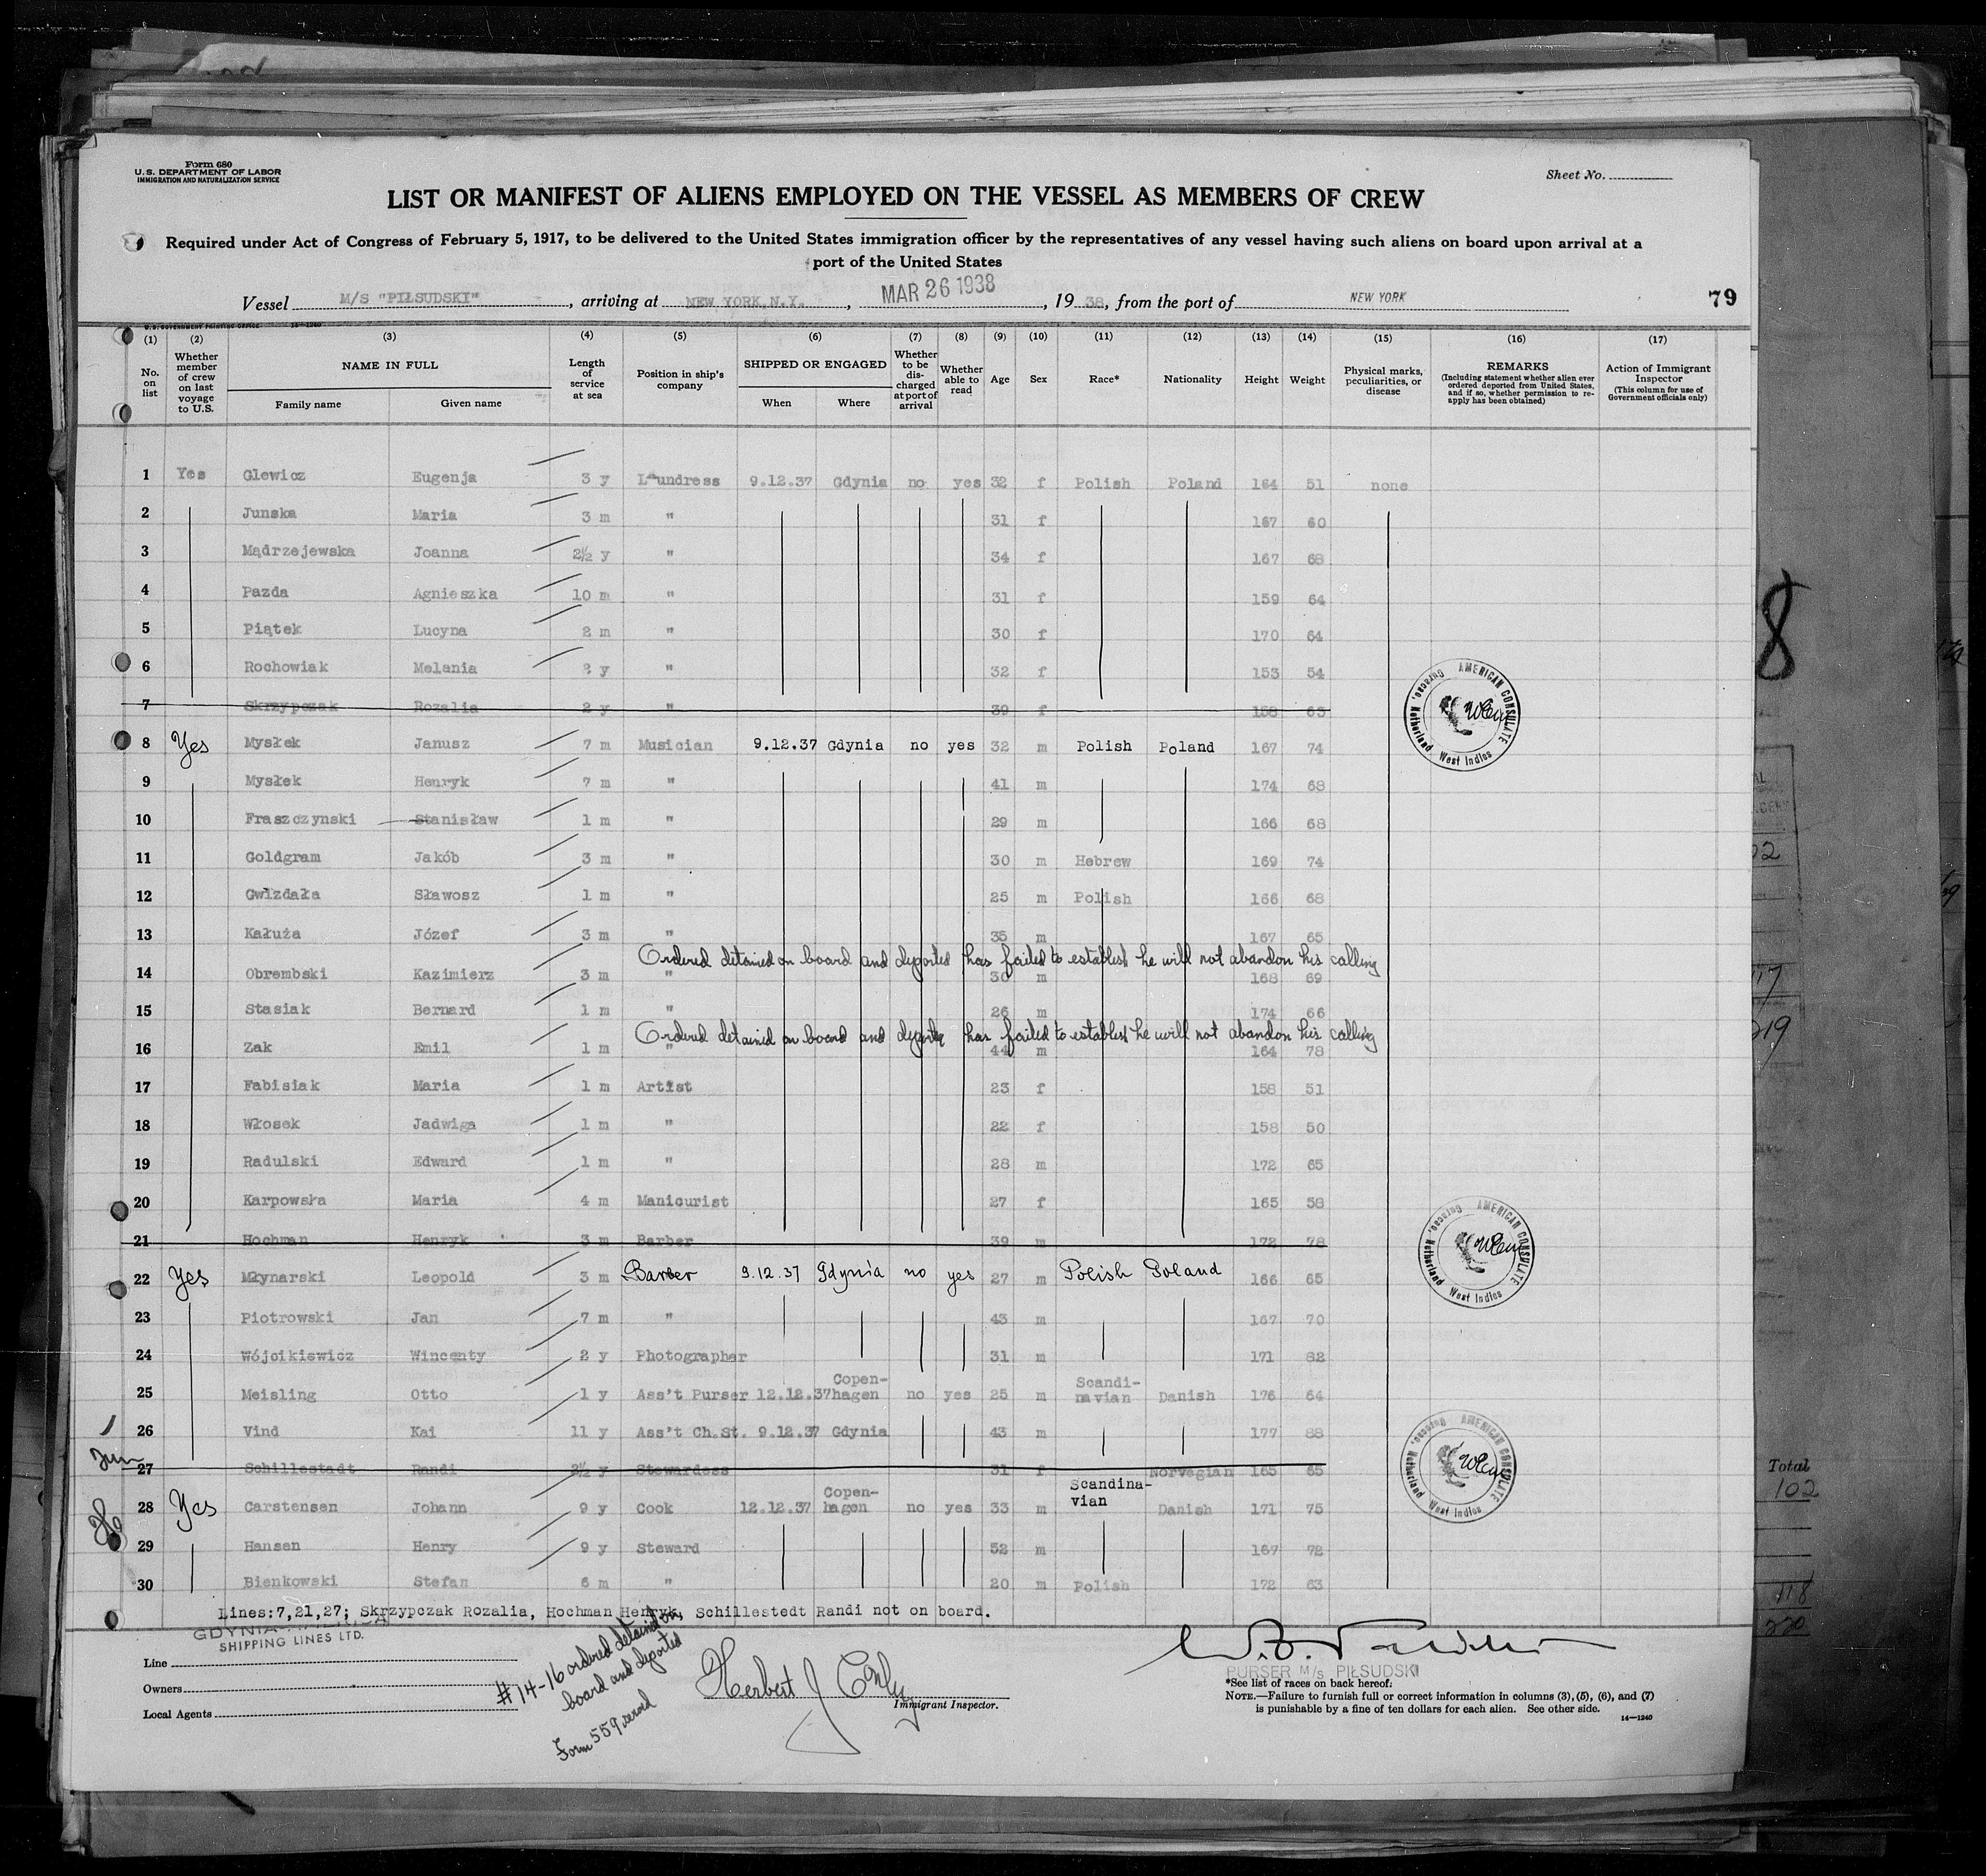 Form 680
U.S. DEPARTMENT OF LABOR
IMMIGRATION AND NATURALIZATION SERVICE
Sheet No.
LIST OR MANIFEST OF ALIENS EMPLOYED ON THE VESSEL AS MEMBERS OF CREW
Required under Act of Congress of February 5, 1917, to be delivered to the United States immigration officer by the representatives of any vessel having such aliens on board upon arrival at a
port of the United States
Vessel M/S "PIŁSUDSKI", arriving at NEW YORK, N.Y., MAR 26 1938, 19 38, from the port of NEW YORK 79
U.S. GOVERNMENT PRINTING OFFICE 14—1240
(1) (2) (3) (4) (5) (6) (7) (8) (9) (10) (11) (12) (13) (14) (15) (16) (17)
No. on list
Whether member of crew on last voyage to U.S.
NAME IN FULL
Family name Given name
Length of service at sea
Position in ship's company
SHIPPED OR ENGAGED
When Where
Whether to be discharged at port of arrival
Whether able to read
Age
Sex
Race*
Nationality
Height
Weight
Physical marks, peculiarities, or disease
REMARKS
(Including statement whether alien ever ordered deported from United States, and if so, whether permission to reapply has been obtained)
Action of Immigrant Inspector
(This column for use of Government officials only)
1 Yes Glewicz Eugenja 3 y Laundress 9.12.37 Gdynia no yes 32 f Polish Poland 164 51 none
2 Junska Maria 3 m " 31 f 167 60
3 Mądrzejewska Joanna 2½ y " 34 f 167 68
4 Pazda Agnieszka 10 m " 31 f 159 64
5 Piątek Lucyna 2 m " 30 f 170 64
6 Rochowiak Melania 2 y " 32 f 153 54
7 Skrzypczak Rozalia 2 y " 39 f 158 63
8 Yes Mysłek Janusz 7 m Musician 9.12.37 Gdynia no yes 32 m Polish Poland 167 74
9 Mysłek Henryk 7 m " 41 m 174 68
10 Fraszczynski Stanisław 1 m " 29 m 166 68
11 Goldgram Jakób 3 m " 30 m Hebrew 169 74
12 Gwizdała Sławosz 1 m " 25 m Polish 166 68
13 Kałuża Józef 3 m " 35 m 167 65
Ordered detained on board and deported has failed to establish he will not abandon his calling
14 Obrembski Kazimierz 3 m " 30 m 168 69
15 Stasiak Bernard 1 m " 26 m 174 66
Ordered detained on board and deported has failed to establish he will not abandon his calling
16 Zak Emil 1 m " 44 m 164 78
17 Fabisiak Maria 1 m Artist 23 f 158 51
18 Włosek Jadwiga 1 m " 22 f 158 50
19 Radulski Edward 1 m " 28 m 172 65
20 Karpowska Maria 4 m Manicurist 27 f 165 58
21 Hochman Henryk 3 m Barber 39 m 172 78
22 Yes Młynarski Leopold 3 m Barber 9.12.37 Gdynia no yes 27 m Polish Poland 166 65
23 Piotrowski Jan 7 m " 43 m 167 70
24 Wójcikiewicz Wincenty 2 y Photographer 31 m 171 82
25 Meisling Otto 1 y Ass't Purser 12.12.37 Copenhagen no yes 25 m Scandinavian Danish 176 64
26 Vind Kai 11 y Ass't Ch.St. 9.12.37 Gdynia 43 m 177 88
27 Schillestadt Randi 2½ y Stewardess 31 f Norvegian 165 65
28 Yes Carstensen Johann 9 y Cook 12.12.37 Copenhagen no yes 33 m Scandinavian Danish 171 75
29 Hansen Henry 9 y Steward 52 m 167 72
30 Bienkowski Stefan 6 m " 20 m Polish 172 63
AMERICAN CONSULATE Curacao, Netherland West Indies
AMERICAN CONSULATE Curacao, Netherland West Indies
AMERICAN CONSULATE Curacao, Netherland West Indies
Lines:7,21,27; Skrzypczak Rozalia, Hochman Henryk, Schillestedt Randi not on board.
SHIPPING LINES LTD.
Line
Owners
Local Agents
#14-16 ordered detained on
board and deported
Form 559 served
Herbert J
Immigrant Inspector.
PURSER M/s PIŁSUDSKI
*See list of races on back hereof.
NOTE.—Failure to furnish full or correct information in columns (3), (5), (6), and (7)
is punishable by a fine of ten dollars for each alien. See other side.
14—1240
8
Total
102
118
220